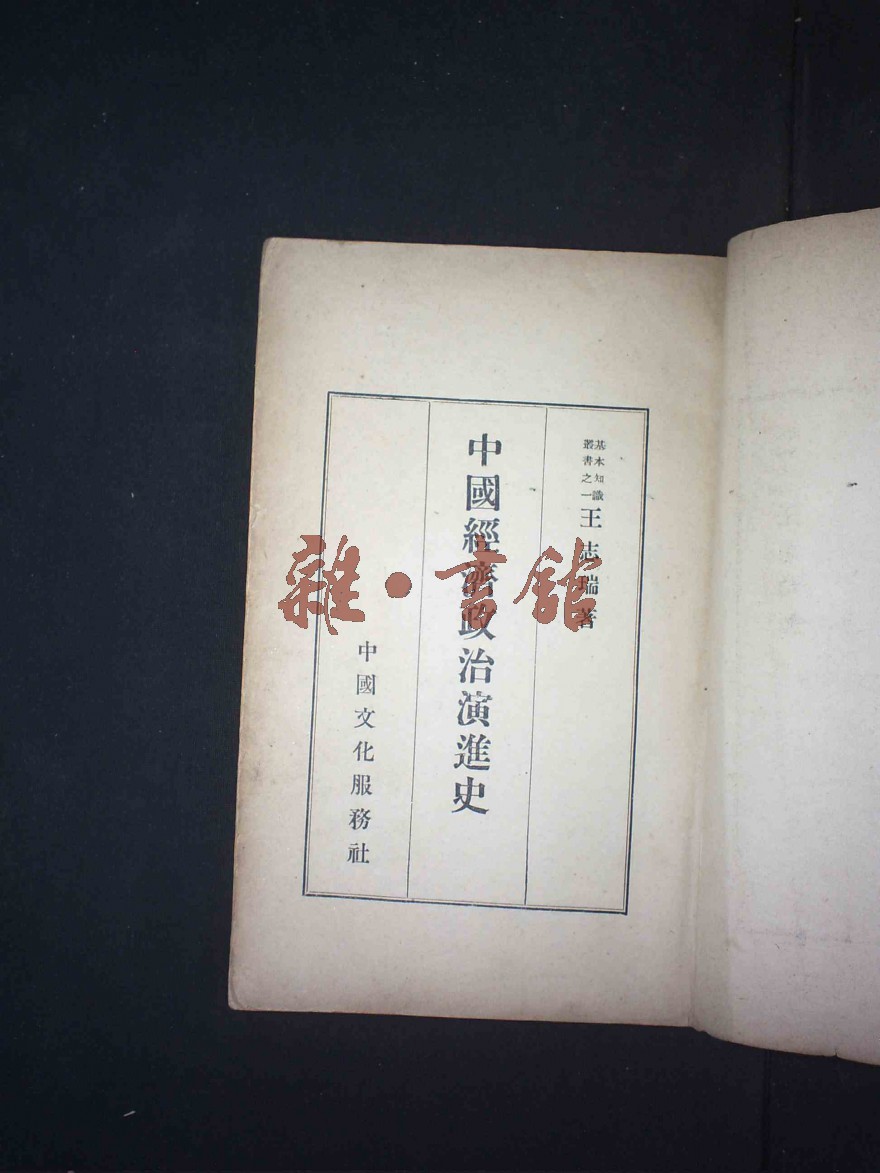 基本知識
叢書之一
王志瑞著
中國經濟政治演進史
中國文化服務社
雜·書館